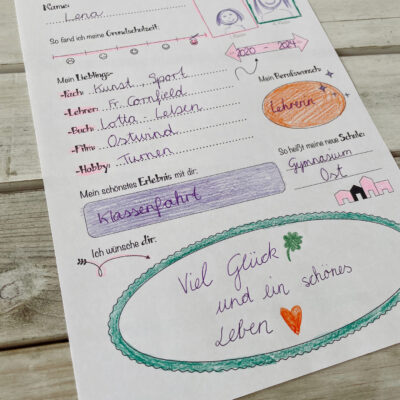 Name:
Lena
So fand ich meine Grundschulzeit:
2020 - 2024
Mein Lieblings-
-Fach: Kunst, Sport
-Lehrer: Fr. Cornfield
-Buch: Lotta-Leben
-Film: Ostwind
-Hobby: Turnen
Mein Berufswunsch:
Lehrerin
So heißt meine neue Schule:
Gymnasium
Ost
Mein schönstes Erlebnis mit dir:
Klassenfahrt
Ich wünsche dir:
Viel Glück
und ein schönes
Leben